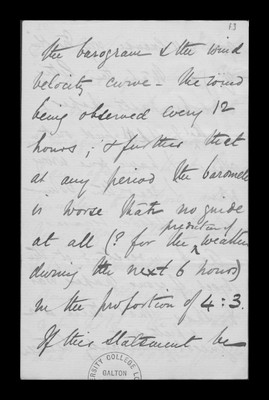 13
the barogram & the wind
velocity curve - the wind
being observed every 12
hours; & further that
at any period the baromete
is worse than no guide
prediction of
at all (? for the weather
during the next 6 hours)
in the proportion of 4:3.
If this statement be
COLLEGE
GALTON